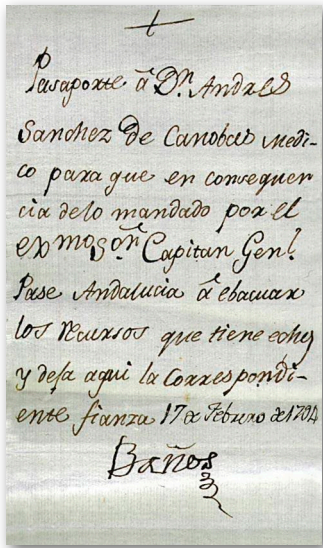 Pasaporte â Dn. Andres
Sanchez de Canobas medi-
co para que en consequen
cia delo mandado por el
exmo Sor. Capitan Genl.
Pase Andalucia â ebacuar
los recursos que tiene echos
y deja aqui la correspondi-
ente fianza 17 de Febrero de 1794
Baños